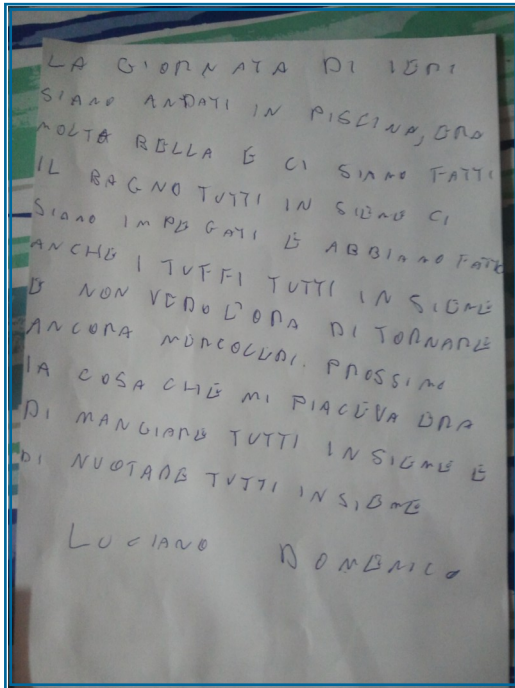 LA GIORNATA DI IERI
SIAMO ANDATI IN PISCINA, ERA
MOLTA BELLA E CI SIAMO FATTI
IL BAGNO TUTTI IN SIEME CI
SIAMO IMPEGATI E ABBIAMO FATTO
ANCHE I TUFFI TUTTI IN SIEME
E NON VEDO L'ORA DI TORNARE
ANCORA MERCOLEDI. PROSSIMO
LA COSA CHE MI PIACEVA ERA
DI MANGIARE TUTTI IN SIEME E
DI NUOTARE TUTTI IN SIEME
LUCIANO DOMENICO